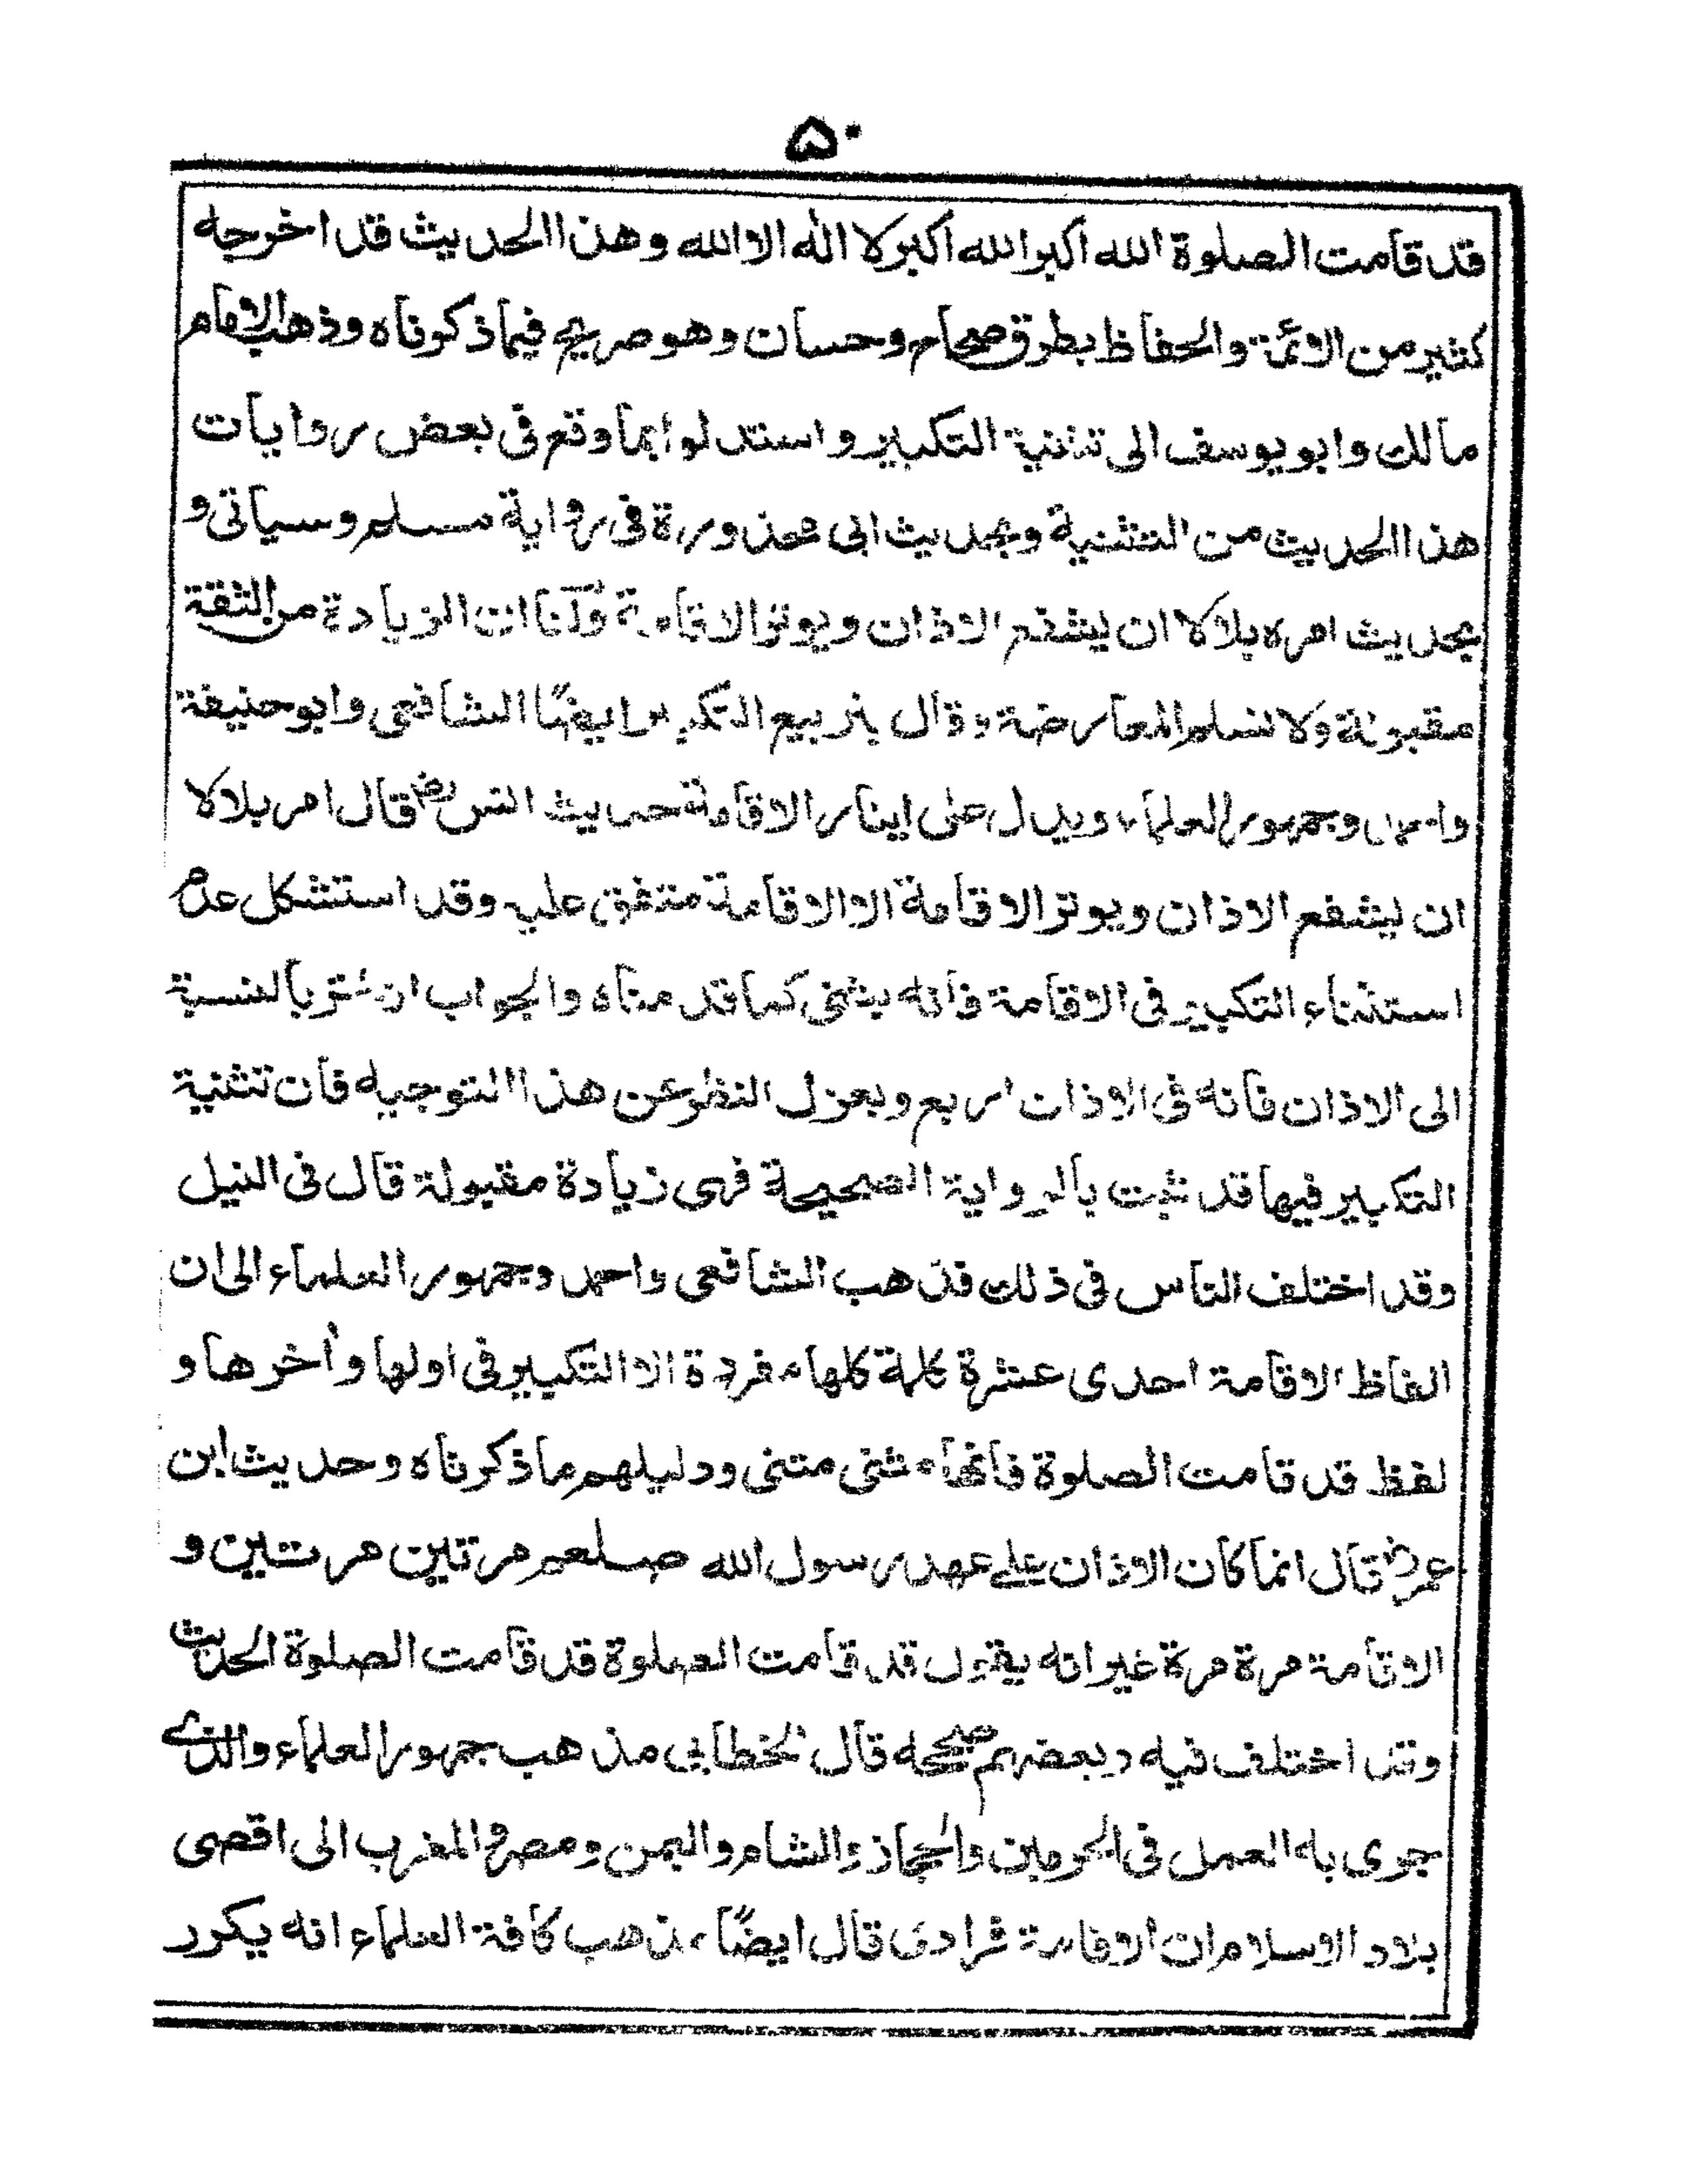 ۵۰
قد قامت الصلوة الله اكبر الله اكبر لا اله الا الله وهذا الحديث قد اخرجه
كثير من الائمة والحفاظ بطرق صحاح وحسان وهو صريح فيما ذكرناه وذهب الامام
مالك وابو يوسف الى تثنية التكبير واستدلوا بما وقع في بعض روايات
هذا الحديث من التثنية وبحديث ابى محذورة فى رواية مسلم وسياتى و
بحديث امره بلالا ان يشفع الاذان ويوتر الاقامة ولنا ان الزيادة من الثقة
مقبولة ولا نسلم المعارضة وقال بتربيع التكبير ايضًا الشافعى وابو حنيفة
واحمد وجمهور العلماء ويدل على ايتار الاقامة حديث انس رض قال امر بلالا
ان يشفع الاذان ويوتر الاقامة الا الاقامة متفق عليه وقد استشكل عدم
استثناء التكبير فى الاقامة فانه يثنى كما قدمناه والجواب انه وتر بالنسبة
الى الاذان فانه فى الاذان اربع وبعزل النظر عن هذا التوجيه فان تثنية
التكبير فيها قد ثبت بالرواية الصحيحة فهى زيادة مقبولة قال فى النيل
وقد اختلف الناس فى ذلك فذهب الشافعى واحمد وجمهور العلماء الى ان
الفاظ الاقامة احدى عشرة كلمة كلها مفردة الا التكبير فى اولها وأخرها و
لفظ قد قامت الصلوة فانها مثنى مثنى ودليلهم ما ذكرناه وحديث ابن
عمر رض قال انما كان الاذان على عهد رسول الله صلعم مرتين مرتين و
الاقامة مرة مرة غير انه يقول قد قامت الصلوة قد قامت الصلوة الحديث
وقد اختلف فيه وبعضهم صححه قال الخطابى مذهب جمهور العلماء والذى
جرى به العمل فى الحرمين والحجاز والشام واليمن ومصر والمغرب الى اقصى
بلاد الاسلام ان الاقامة فرادى قال ايضًا مذهب كافة العلماء انه يكرر